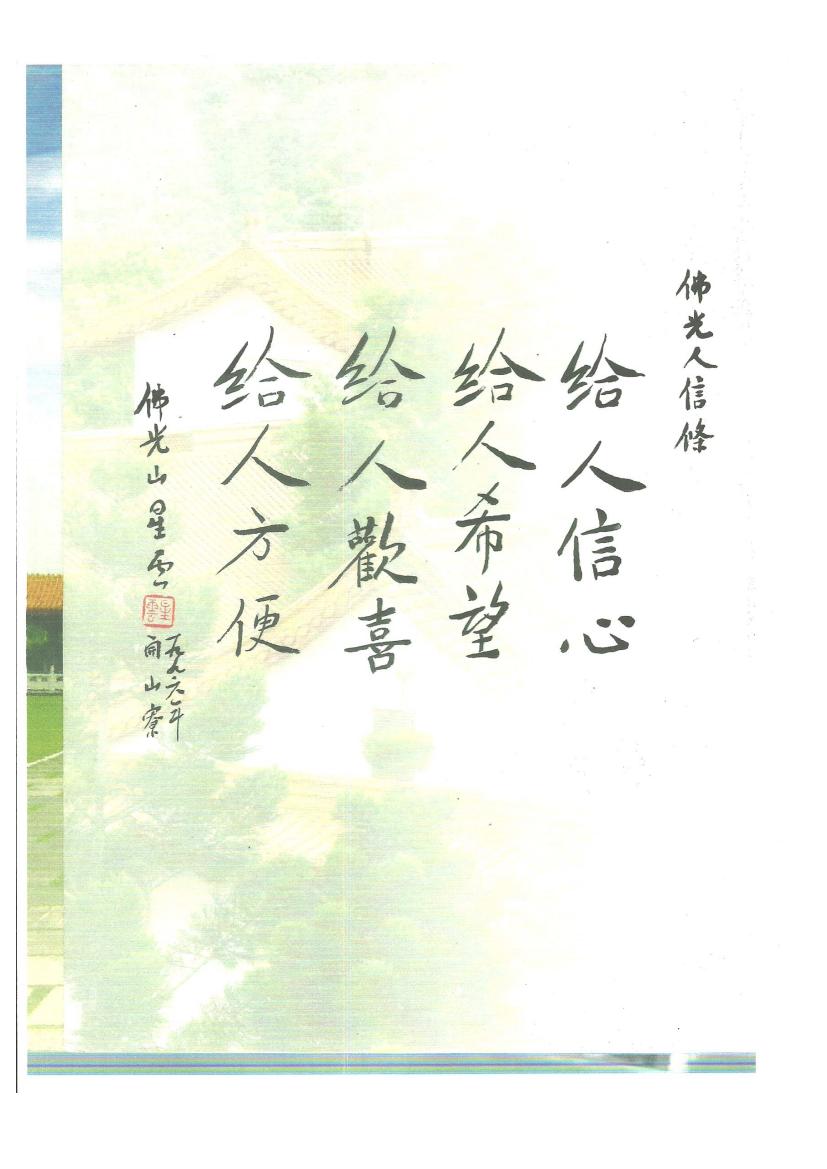 佛光人信條
给人信心
给人希望
给人歡喜
给人方便
佛光山星雲
星雲
一九九六年
開山寮